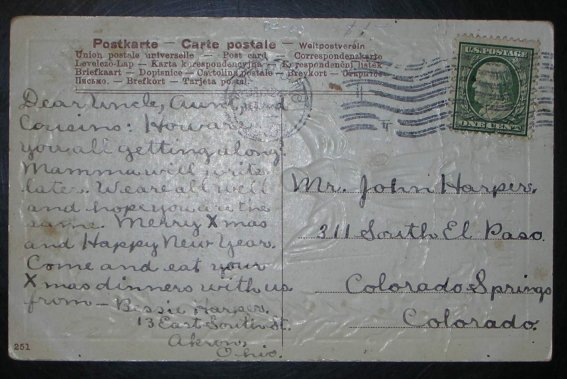 Postkarte — Carte postale — Weltpostverein
Union postale universelle — Post card — Correspondenzkarte
Levelező-Lap — Karta korespondencyjna — Korespondenční lístek
Briefkaart — Dopisnice — Cartolina postale — Brevkort —
Письмо. — Brefkort — Tarjeta postal.
U.S. POSTAGE
ONE CENT
Dear Uncle, Aunt, and
Cousins: How are
you all getting along?
Mamma will write
later. We are all well
and hope you are the
same. Merry Xmas
and Happy New Year.
Come and eat your
Xmas dinners with us
from — Bessie Harpers.
13 East South St.
Akron,
Ohio.
Mr. John Harpers,
311 South El Paso.
Colorado Springs
Colorado.
251